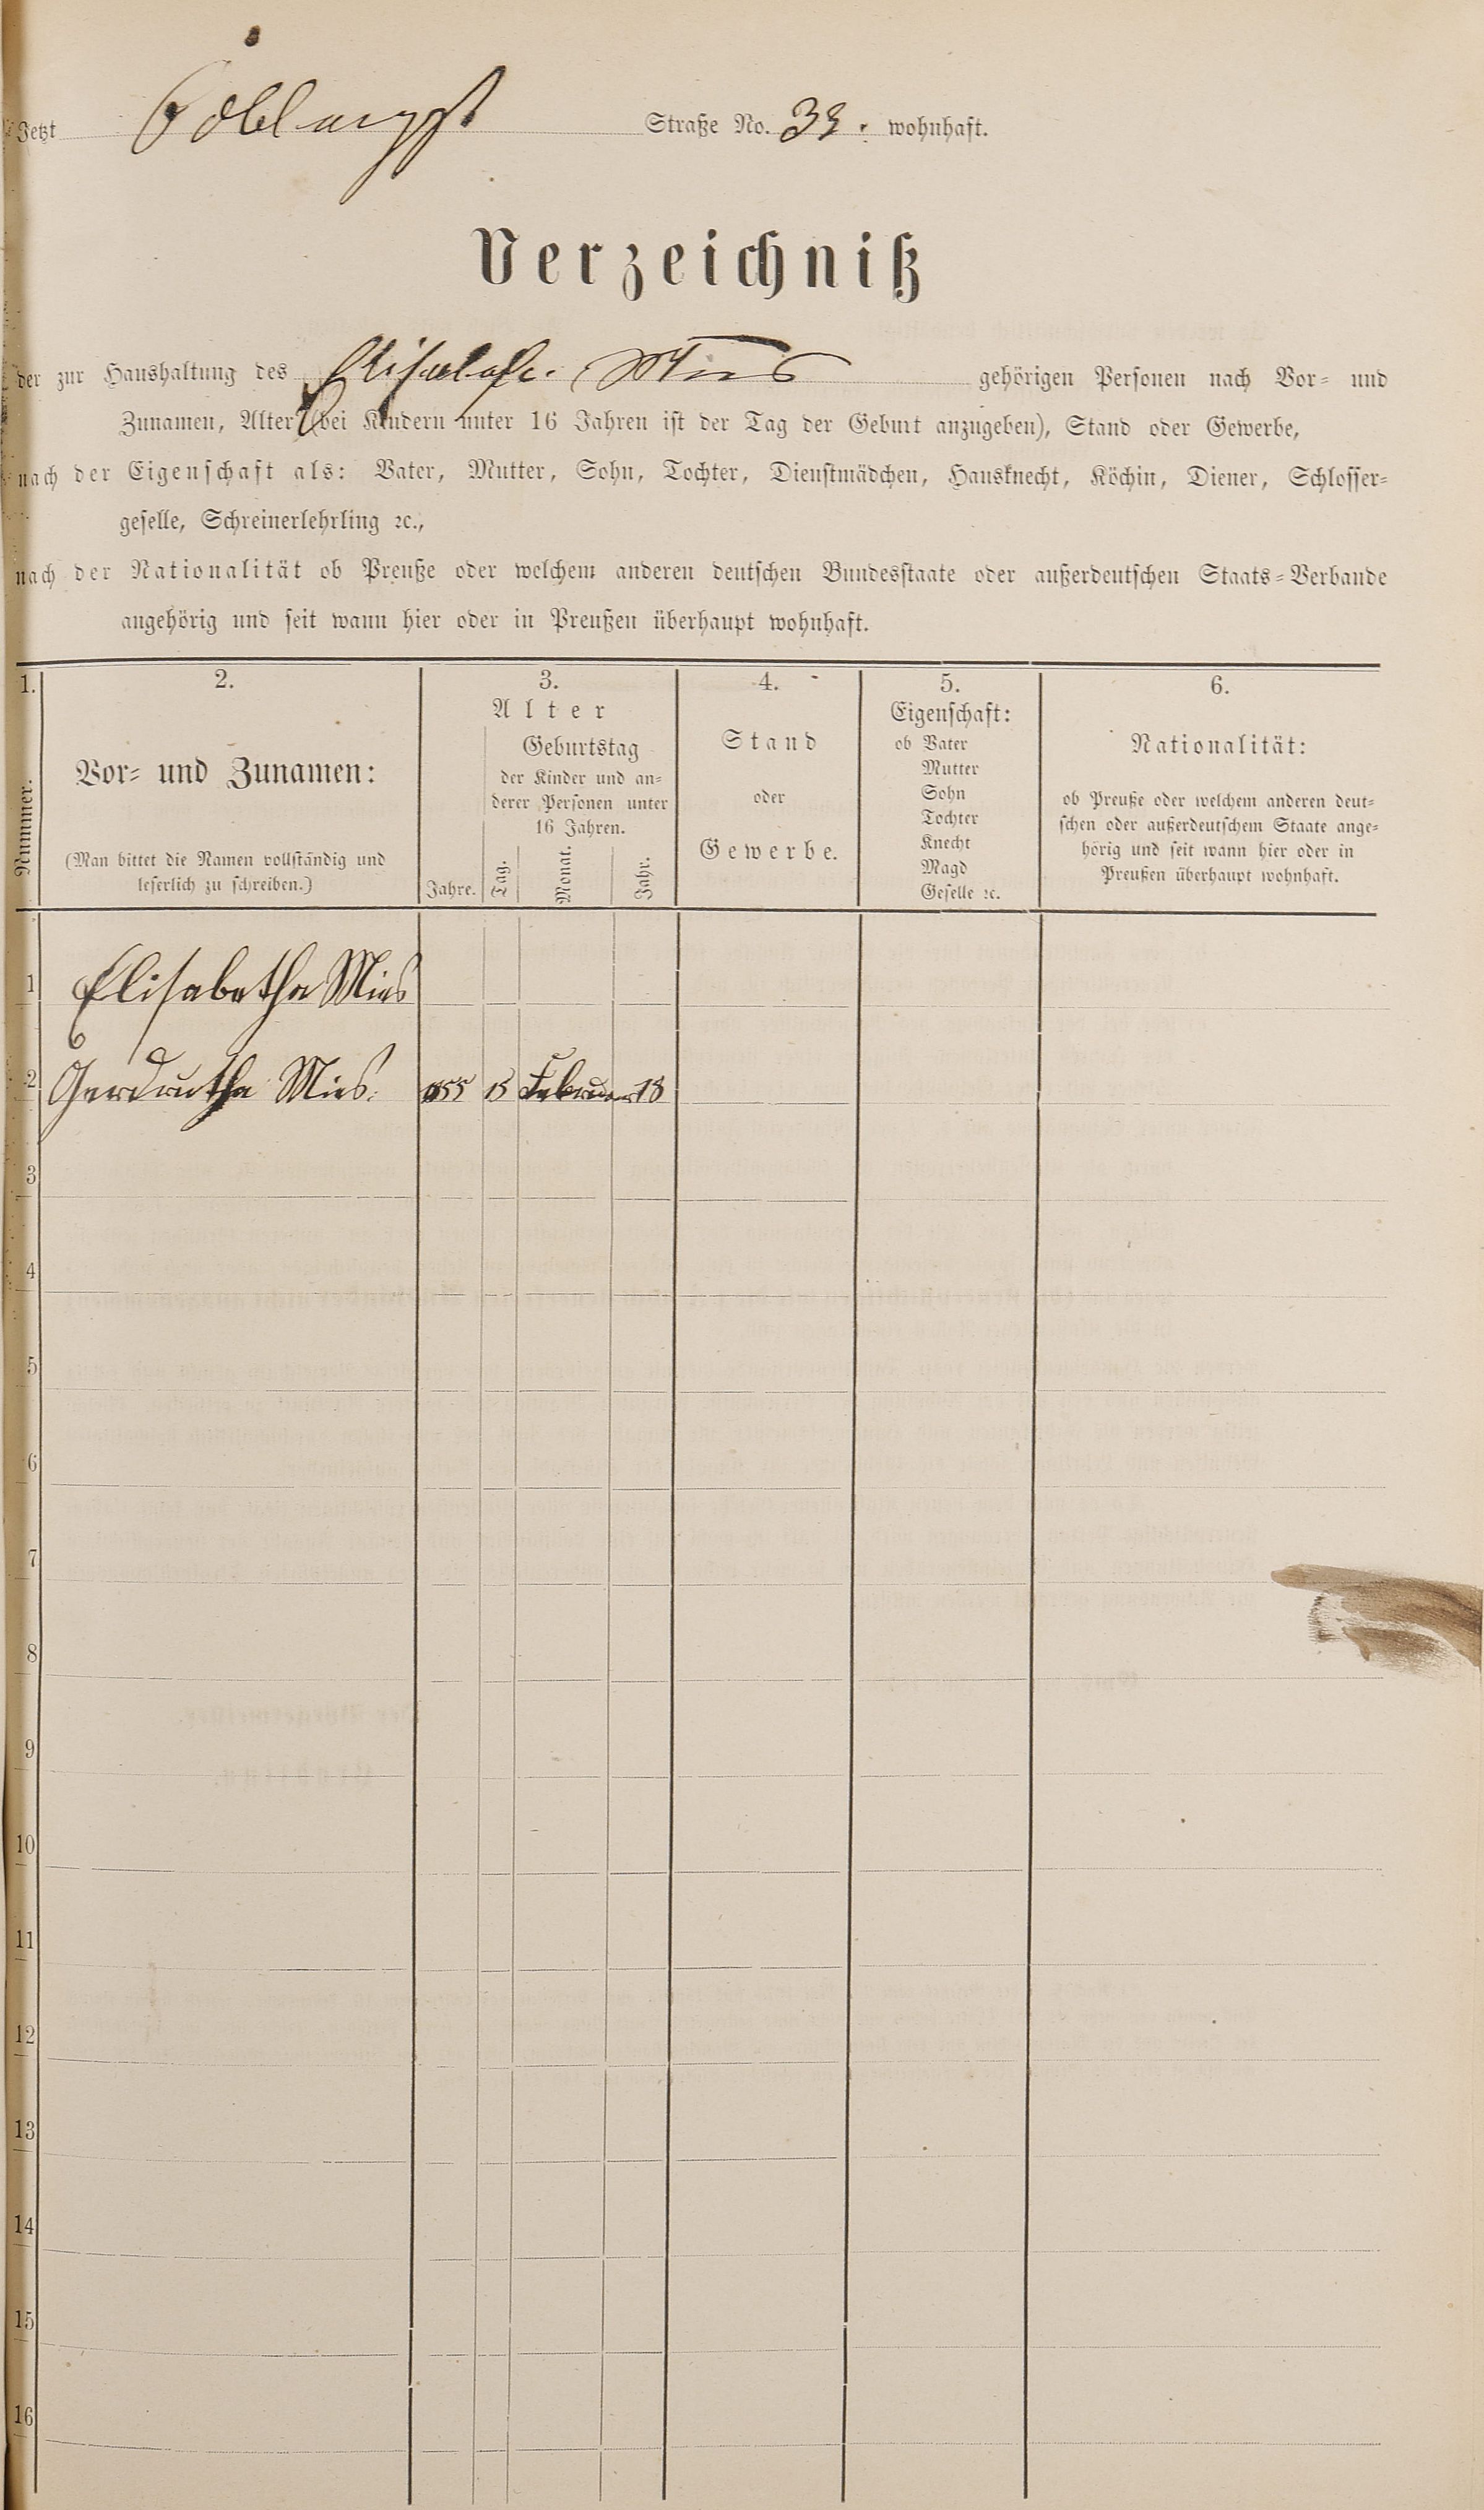 Jetzt Straße No. 39. wohnhaft.
Verzeichniß
der zur Haushaltung des Elisabeth. Mies gehörigen Personen nach Vor- und
Zunamen, Alter (bei Kindern unter 16 Jahren ist der Tag der Geburt anzugeben), Stand oder Gewerbe,
nach der Eigenschaft als: Vater, Mutter, Sohn, Tochter, Dienstmädchen, Hausknecht, Köchin, Diener, Schlosser-
geselle, Schreinerlehrling ꝛc.,
nach der Nationalität ob Preuße oder welchem anderen deutschen Bundesstaate oder außerdeutschen Staats-Verbande
angehörig und seit wann hier oder in Preußen überhaupt wohnhaft.
1.
Nummer.
2.
Vor- und Zunamen:
(Man bittet die Namen vollständig und
leserlich zu schreiben.)
3.
Alter
Geburtstag
der Kinder und an-
derer Personen unter
16 Jahren.
Jahre.
Tag.
Monat.
Jahr.
4.
Stand
oder
Gewerbe.
5.
Eigenschaft:
ob Vater
Mutter
Sohn
Tochter
Knecht
Magd
Geselle ꝛc.
6.
Nationalität:
ob Preuße oder welchem anderen deut-
schen oder außerdeutschem Staate ange-
hörig und seit wann hier oder in
Preußen überhaupt wohnhaft.
1 Elisabetha Mies
2 Gerdrutha Mies. 15 Februar 18
3
4
5
6
7
8
9
10
11
12
13
14
15
16